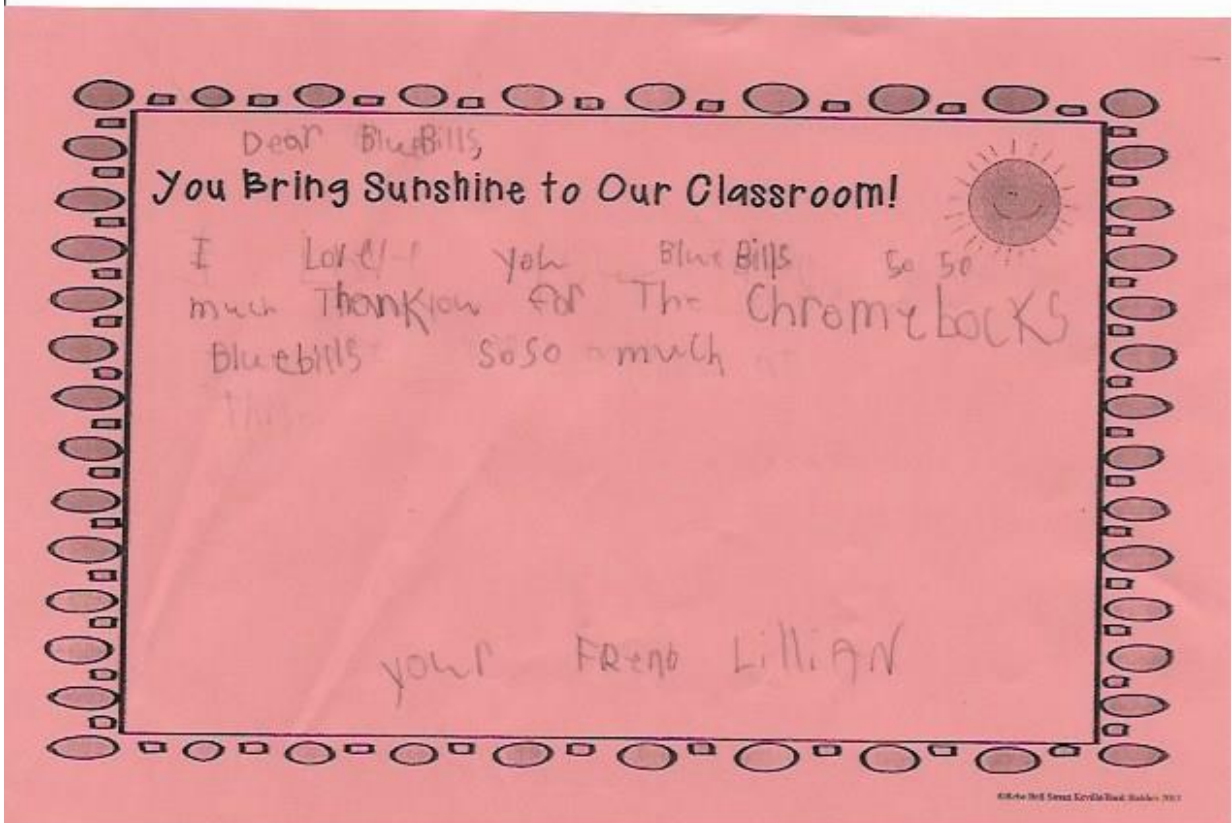 Dear BlueBills,
You Bring Sunshine to Our Classroom!
I Love you BlueBills so so
much Thankyou for The Chromebocks
Bluebills SoSo much
this
your FRend LilliAN